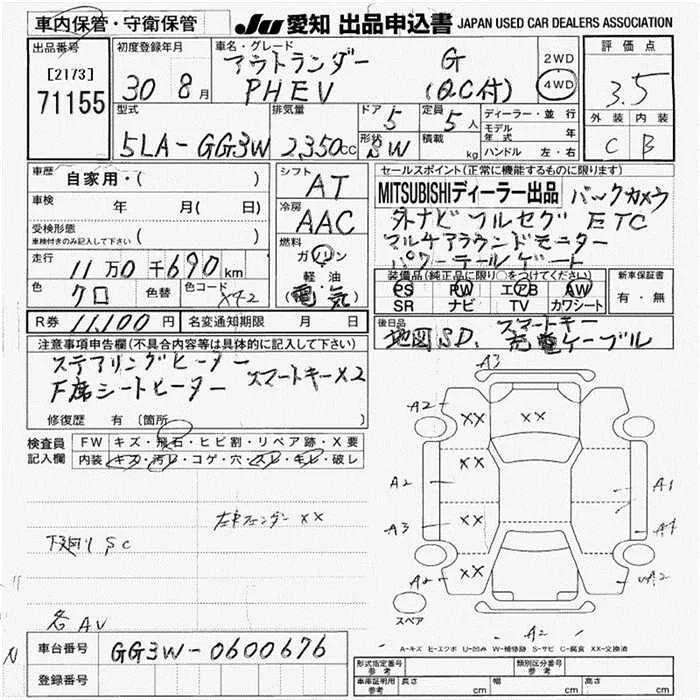 車内保管・守衛保管
JU 愛知 出品申込書 JAPAN USED CAR DEALERS ASSOCIATION
出品番号
[2173]
71155
初度登録年月
30年 8月
車名・グレード
アウトランダー G
PHEV (QC付)
2WD
4WD
評価点
3.5
外装 内装
C B
型式
5LA-GG3W
排気量
2,350cc
ドア 5
形状 SW
定員 5人
積載 kg
ディーラー・並行
モデル年式 年
ハンドル 左・右
車歴 自家用・( )
車検 年 月( 日)
受検形態
車検付きのみ記入して下さい ( )
走行 11万0千690km
色 クロ 色替 色コード X42
R券 11,100円 名変通知期限 月 日
シフト AT
冷房 AAC
燃料
ガソリン
軽油
(電気)
セールスポイント(正常に機能するものに限ります)
MITSUBISHIディーラー出品 バックカメラ
外ナビ フルセグ ETC
マルチアラウンドモニター
パワーテールゲート
装備品(純正品に限り○をつけてください)
PS PW エアB AW
SR ナビ TV カワシート
新車保証書
有・無
後日品
地図SD. スマートキー
充電ケーブル
注意事項申告欄(不具合内容等は具体的に記入して下さい)
ステアリングヒーター
F席シートヒーター スマートキーX2
修復歴 有 〔箇所 〕
検査員記入欄
FW キズ・飛石・ヒビ割・リペア跡・X要
内装 キズ・汚レ・コゲ・穴・スレ・キレ・破レ
左右フェンダー XX
下廻り SC
各AV
A3
A2 XX XX
XX
A2 A1
A3 XX A1
A2 XX A2
スペア
A2
A-キズ E-エクボ U-凹み W-補修跡 S-サビ C-腐食 XX-交換済
車台番号 GG3W-0600676
登録番号
型式指定番号 参考 類別区分番号 参考
車庫証明用 参考 長さ cm 幅 cm 高さ cm